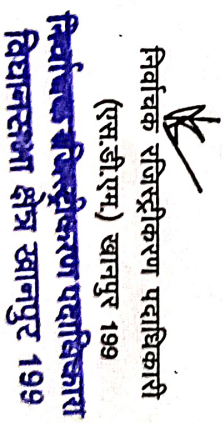 निर्वाचक रजिस्ट्रीकरण पदाधिकारी
(एस.डी.एम.) खानपुर 199
निर्वाचक रजिस्ट्रीकरण पदाधिकारी
विधानसभा क्षेत्र खानपुर 199